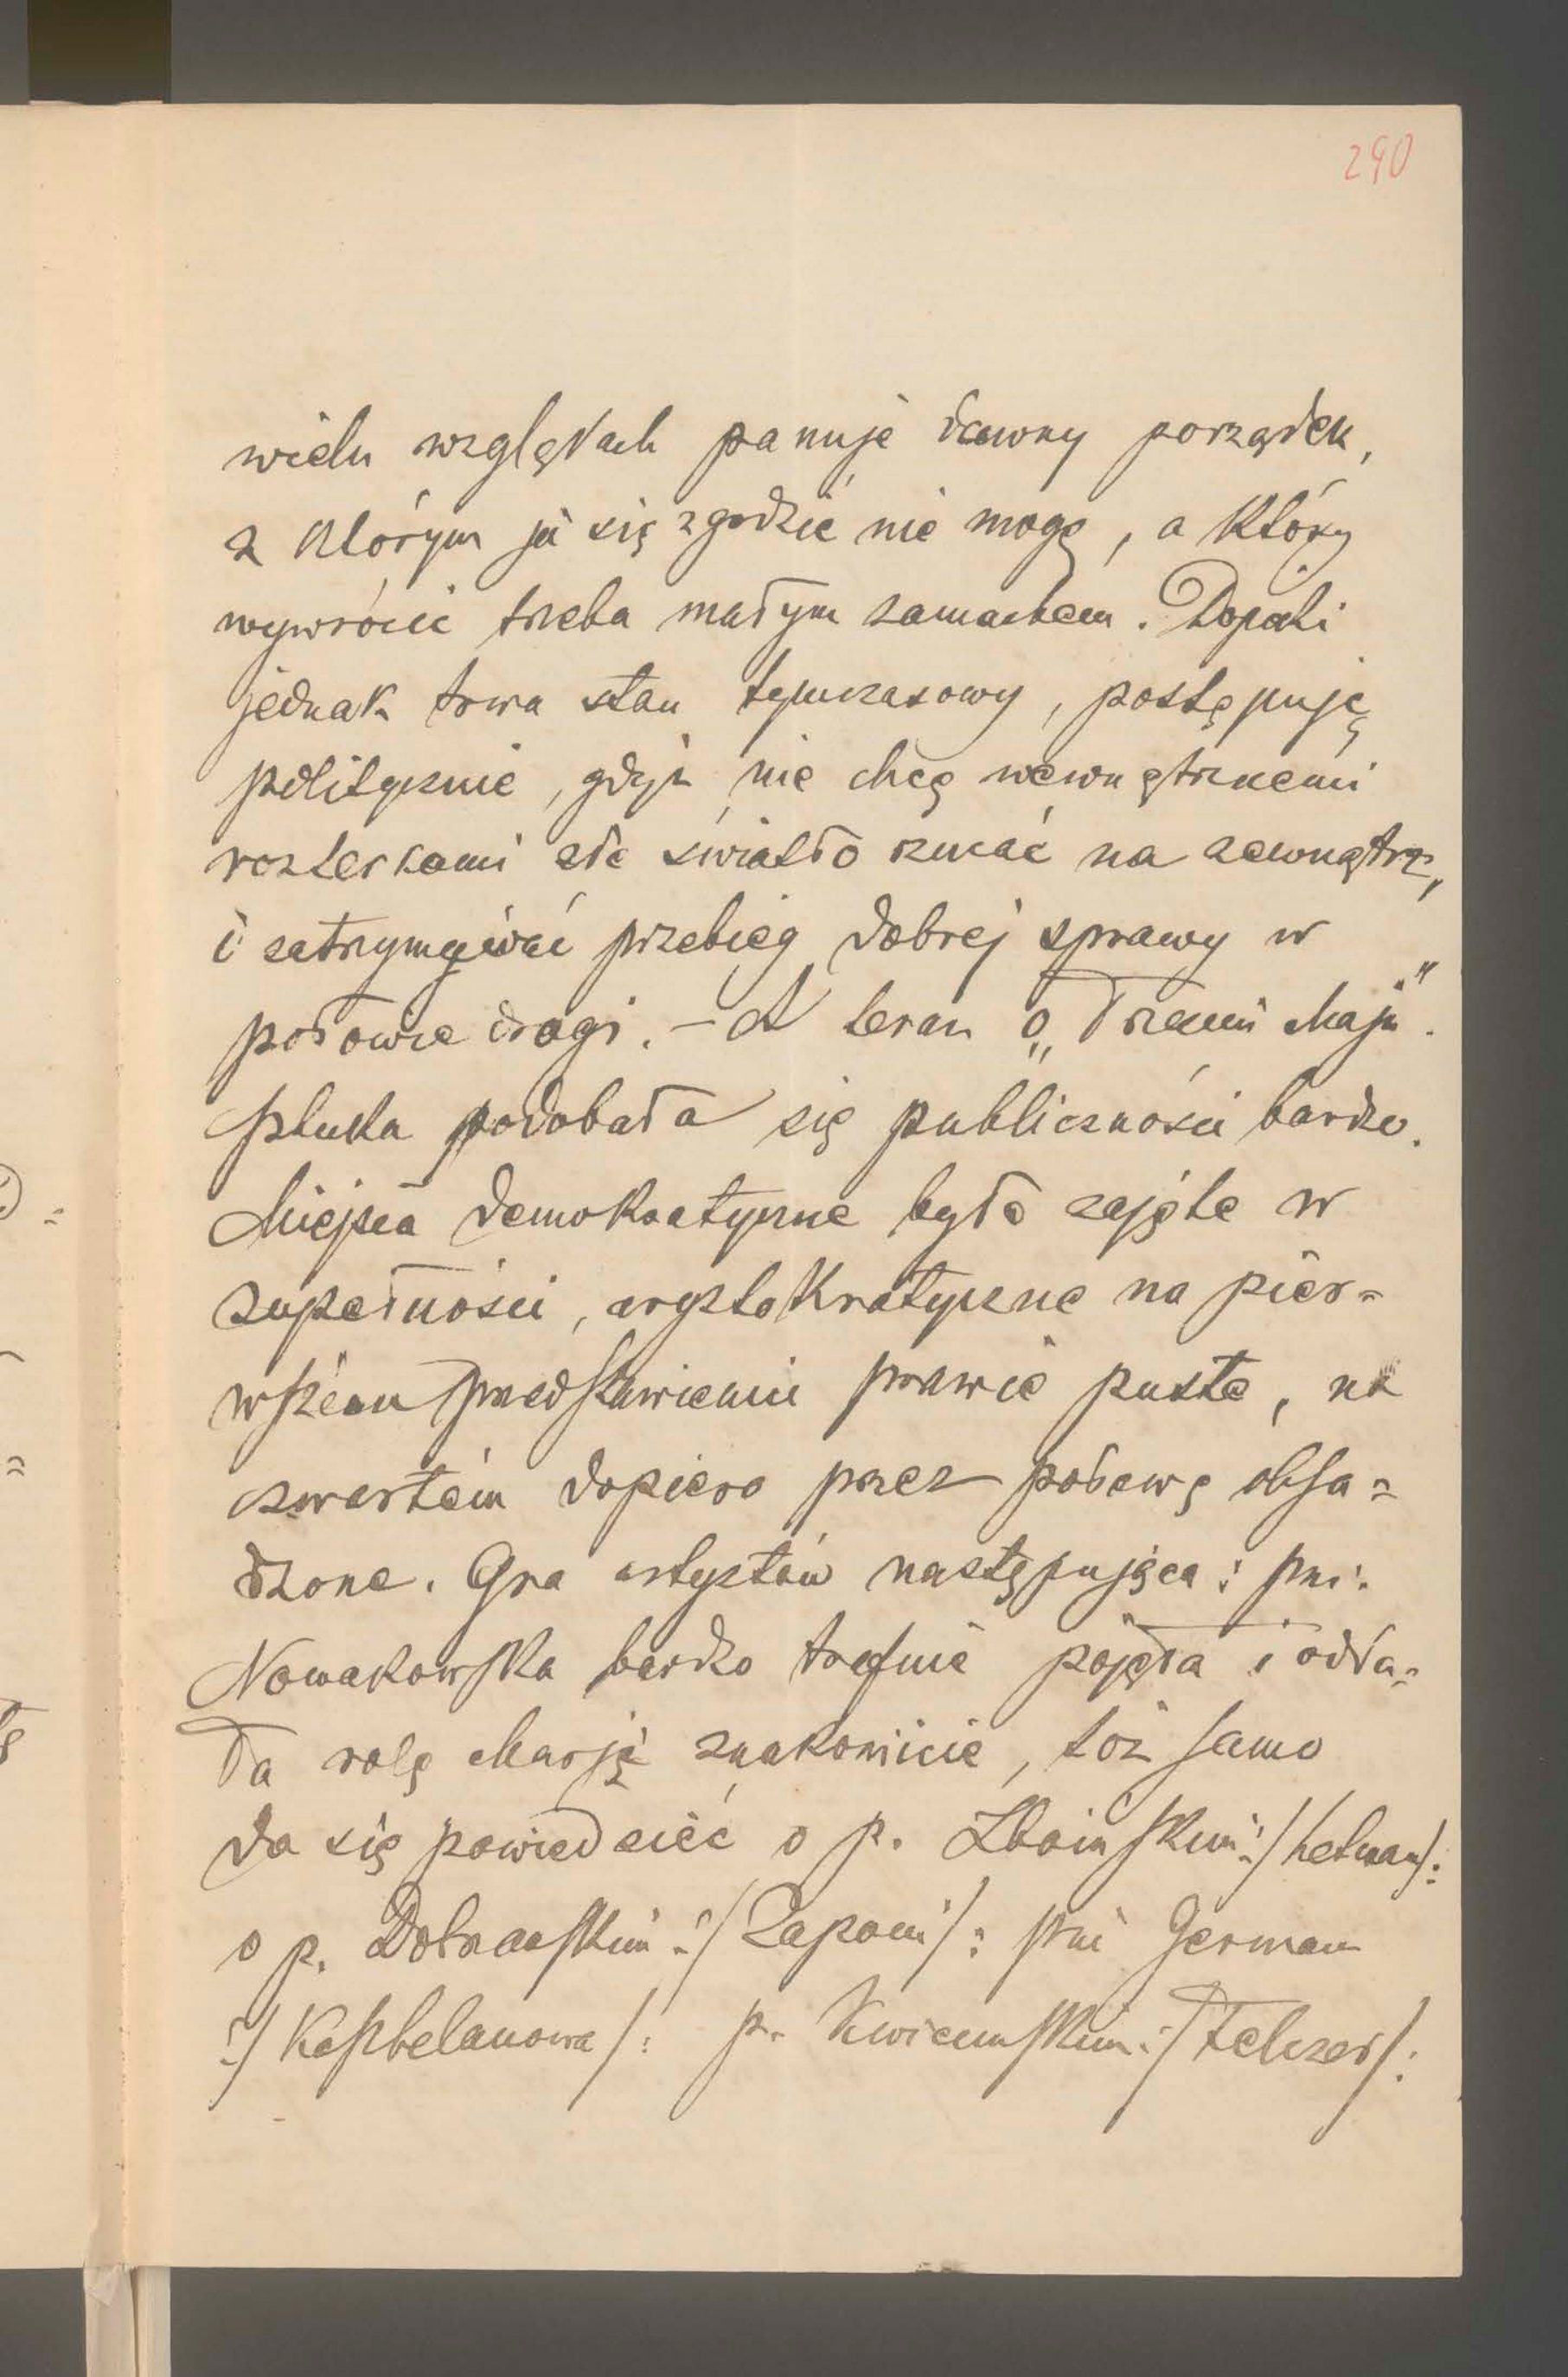 290
wielu względach panuje dawny porządek,
z którym ja się zgodzić nie mogę, a który
wywrócić trzeba małym zamachem. Dopóki
jednak trwa stan tymczasowy, postępuję
politycznie, gdyż nie chcę wewnętrznemi
rozterkami złe światło rzucać na zewnątrz,
i zatrzymywać przebieg dobrej sprawy w
połowie drogi. – A teraz o „Trzecim Maju".
Sztuka podobała się publiczności bardzo.
Miejsca demokratyczne były zajęte w
zupełności, arystokratyczne na pier=
wszém przedstawieniu prawie puste, na
czwartém dopiero przez połowę obsa=
dzone. Gra artystów następująca: pni:
Nowakowska bardzo trafnie pojęła i odda=
ła rolę Marji znakomicie, toż samo
da się powiedzieć o p. Zboińskim :/hetman/:
o p. Dobrzańskim :/Zapom/: pni German
:/Kasztelanowa/: p. Kwiecińskim :/Felczer/: